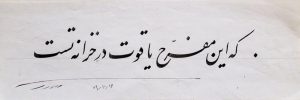 که این مفرّح یاقوت در خزانه تست